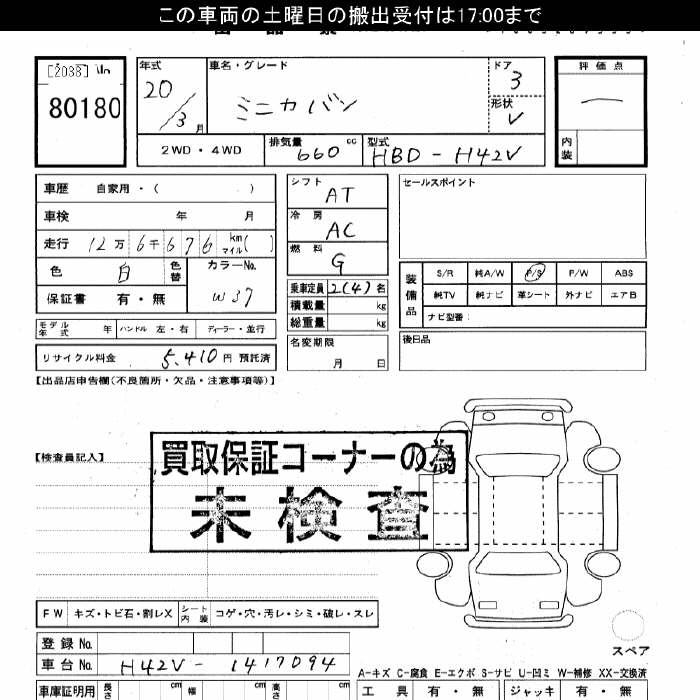 この車両の土曜日の搬出受付は17:00まで
[2038]
80180
年式 20/3月
車名・グレード ミニカバン
ドア 3
形状 V
評価点 —
内装
2WD・4WD
排気量 660 cc
型式 HBD-H42V
車歴 自家用・( )
車検 年 月
走行 12万6千676 km マイル( )
色 白 色替
カラーNo. W37
保証書 有・無
モデル年式 年 ハンドル 左・右 ディーラー・並行
リサイクル料金 5,410円 預託済
シフト AT
冷房 AC
燃料 G
乗車定員 2(4)名
積載量 kg
総重量 kg
名変期限 月 日
セールスポイント
装備品
S/R 純A/W P/S P/W ABS
純TV 純ナビ 革シート 外ナビ エアB
ナビ型番:
後日品
【出品店申告欄(不良箇所・欠品・注意事項等)】
【検査員記入】
買取保証コーナーの為
未検査
FW キズ・トビ石・割レX シート内装 コゲ・穴・汚レ・シミ・破レ・スレ
登録No.
車台No. H42V-1417094
スペア
A-キズ C-腐食 E-エクボ S-サビ U-凹ミ W-補修 XX-交換済
車庫証明用 長さ cm 幅 cm 高さ cm
工具 有・無 ジャッキ 有・無